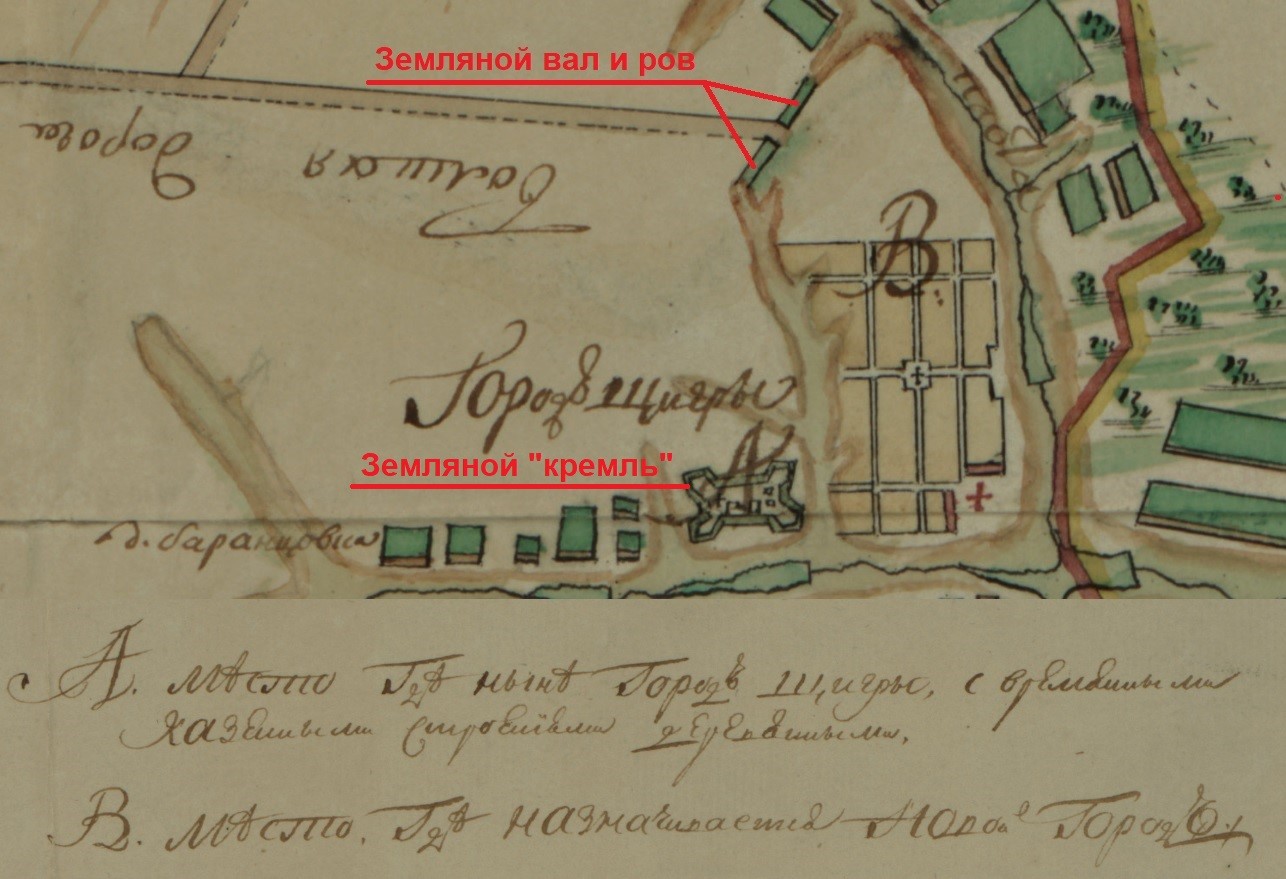 Земляной вал и ров
болшая дорога
В
Городъ Щигры
Земляной "кремль"
А
д. баранцовка
А. мѣсто гдѣ нынѣ Городъ Щигры, с временными
казенными строениями деревянными,
В. мѣсто. гдѣ назначивается Новой Городъ.